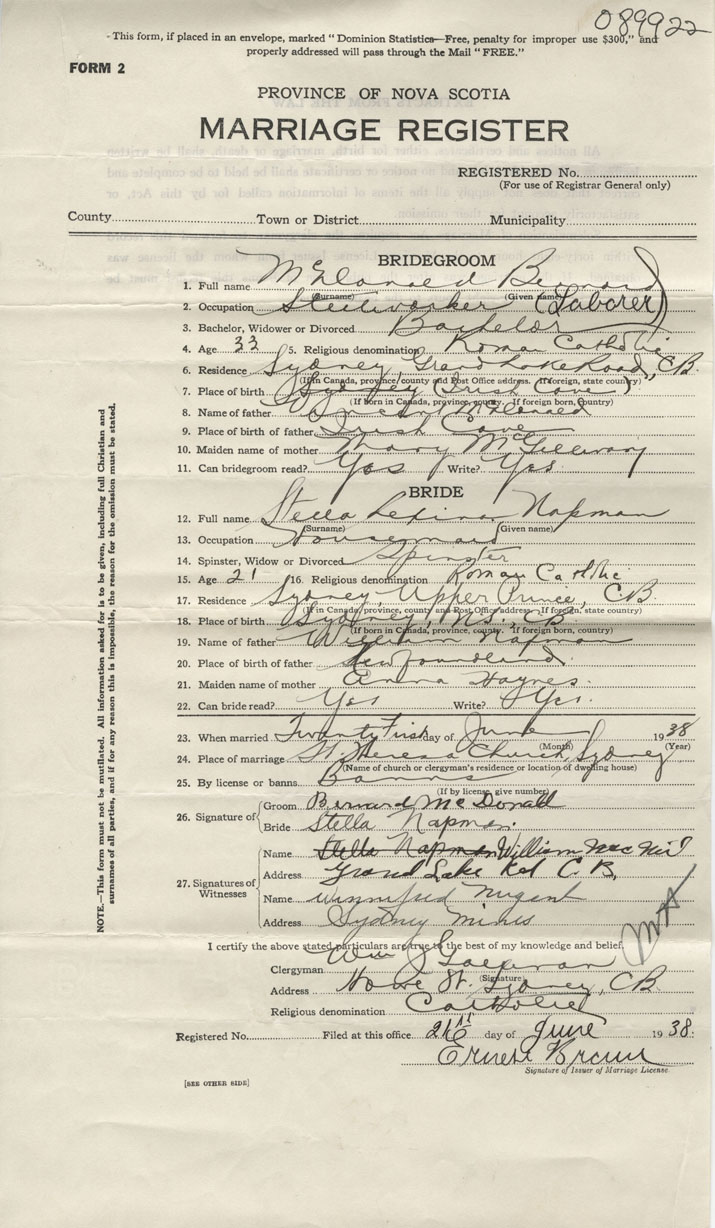 089922
- This form, if placed in an envelope, marked "Dominion Statistics—Free, penalty for improper use $300," and
properly addressed will pass through the Mail "FREE."
FORM 2
PROVINCE OF NOVA SCOTIA
MARRIAGE REGISTER
REGISTERED No.
(For use of Registrar General only)
County Town or District Municipality
BRIDEGROOM
1. Full name McDonald Bernard
(Surname) (Given name)
2. Occupation Steelworker (Laborer)
3. Bachelor, Widower or Divorced Bachelor
4. Age 33 5. Religious denomination Roman Catholic
6. Residence Sydney Grand Lake Road, CB
(If in Canada, province, county and Post Office address. If foreign, state country)
7. Place of birth Sydney (Irish Cove)
(If born in Canada, province, county. If foreign born, country)
8. Name of father Vincent McDonald
9. Place of birth of father Irish Cove
10. Maiden name of mother Mary McGillivary
11. Can bridegroom read? Yes Write? Yes
BRIDE
12. Full name Stella Napman
(Surname) (Given name)
13. Occupation Housemaid
14. Spinster, Widow or Divorced Spinster
15. Age 21 16. Religious denomination Roman Catholic
17. Residence Sydney Upper Prince, CB
(If in Canada, province, county and Post Office address. If foreign, state country)
18. Place of birth Sydney, NS. CB
(If born in Canada, province, county. If foreign born, country)
19. Name of father William Napman
20. Place of birth of father Newfoundland
21. Maiden name of mother Anna Haynes
22. Can bride read? Yes Write? Yes.
23. When married Twenty First day of June 1938
(Month) (Year)
24. Place of marriage St. Theresa Church, Sydney
(Name of church or clergyman's residence or location of dwelling house)
25. By license or banns Banns
(If by license, give number)
26. Signature of Groom Bernard McDonald
Bride Stella Napman.
27. Signatures of Witnesses
Name Stella Napman William Mac
Address Grand Lake Rd C.B.
Name Winnifred Nugent
Address Sydney Mines
I certify the above stated particulars are true to the best of my knowledge and belief.
Clergyman Wm J
(Signature)
Address Howe St. Sydney, CB
Religious denomination Catholic
Registered No. Filed at this office 21st day of June 1938.
Ernest Brown
Signature of Issuer of Marriage License
[SEE OTHER SIDE]
NOTE.—This form must not be mutilated. All information asked for is to be given, including full Christian and
surnames of all parties, and if for any reason this is impossible, the reason for the omission must be stated.